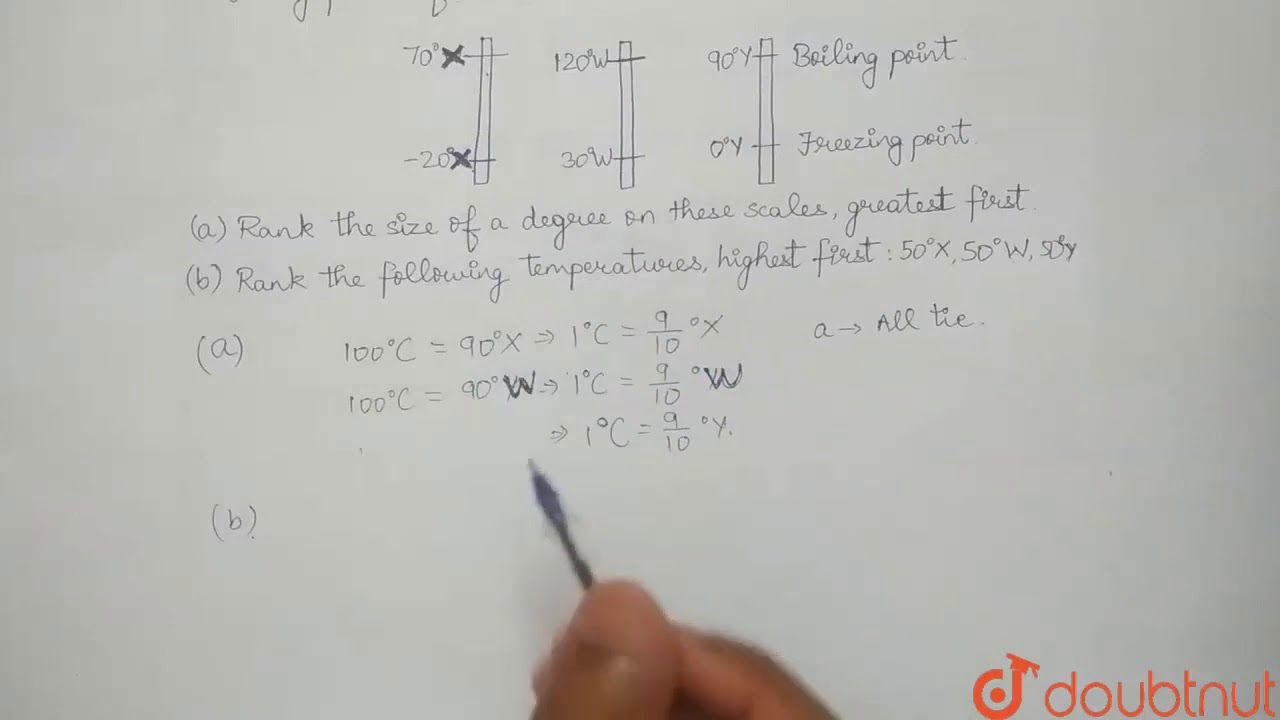 70°X 120°W 90°Y Boiling point.
-20°X 30°W 0°Y Freezing point.
(a) Rank the size of a degree on these scales, greatest first.
(b) Rank the following temperatures, highest first : 50°X, 50°W, 50°Y
(a) 100°C = 90°X ⇒ 1°C = 9/10 °X a → All tie.
100°C = 90°W ⇒ 1°C = 9/10 °W
⇒ 1°C = 9/10 °Y.
(b).
doubtnut